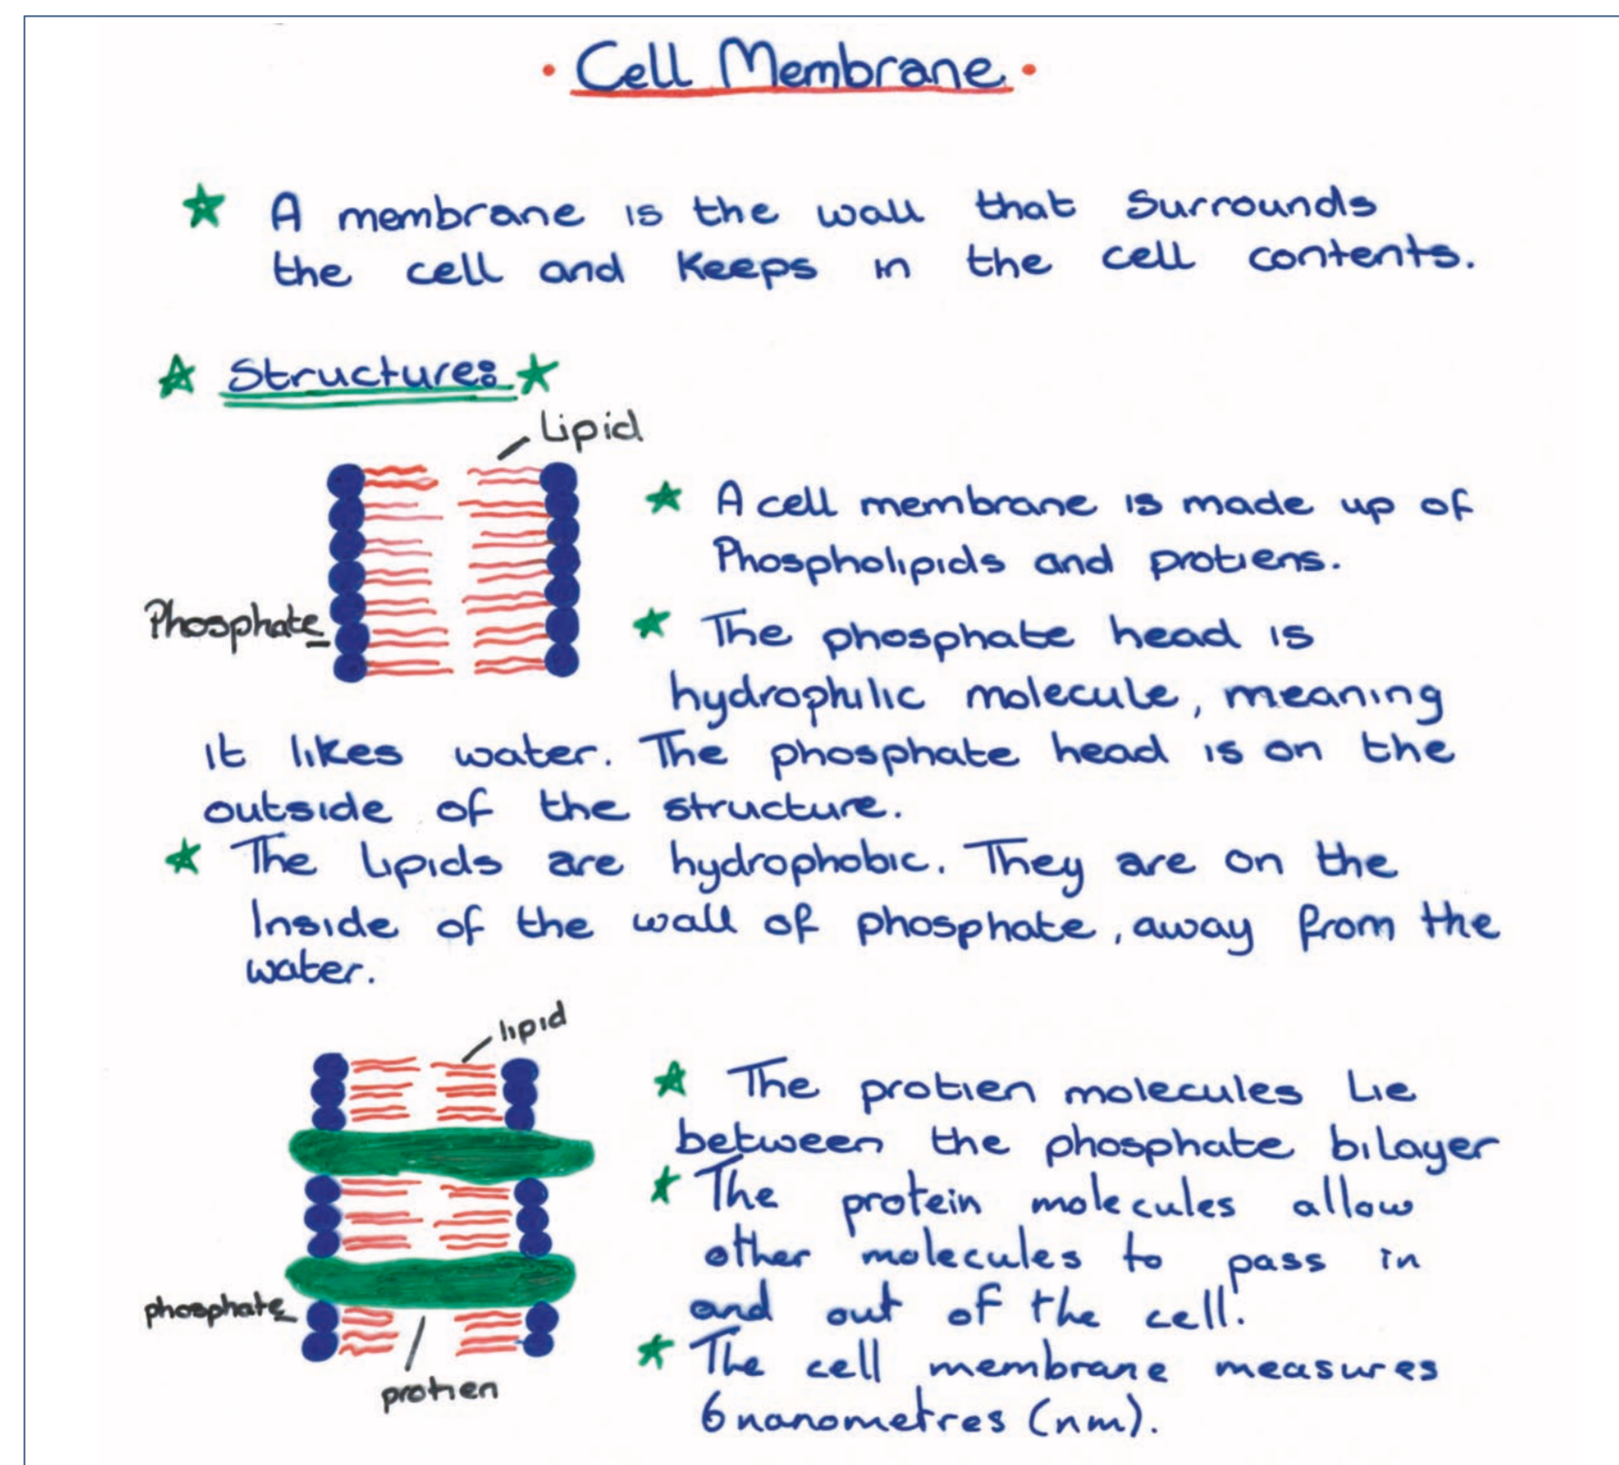 · Cell Membrane ·
A membrane is the wall that surrounds
the cell and keeps in the cell contents.
Structure:
Lipid
Phosphate
A cell membrane is made up of
Phospholipids and protiens.
The phosphate head is
hydrophilic molecule, meaning
it likes water. The phosphate head is on the
outside of the structure.
The lipids are hydrophobic. They are on the
Inside of the wall of phosphate, away from the
water.
lipid
phosphate
protien
The protien molecules Lie
between the phosphate bilayer
The protein molecules allow
other molecules to pass in
and out of the cell.
The cell membrane measures
6 nanometres (nm).